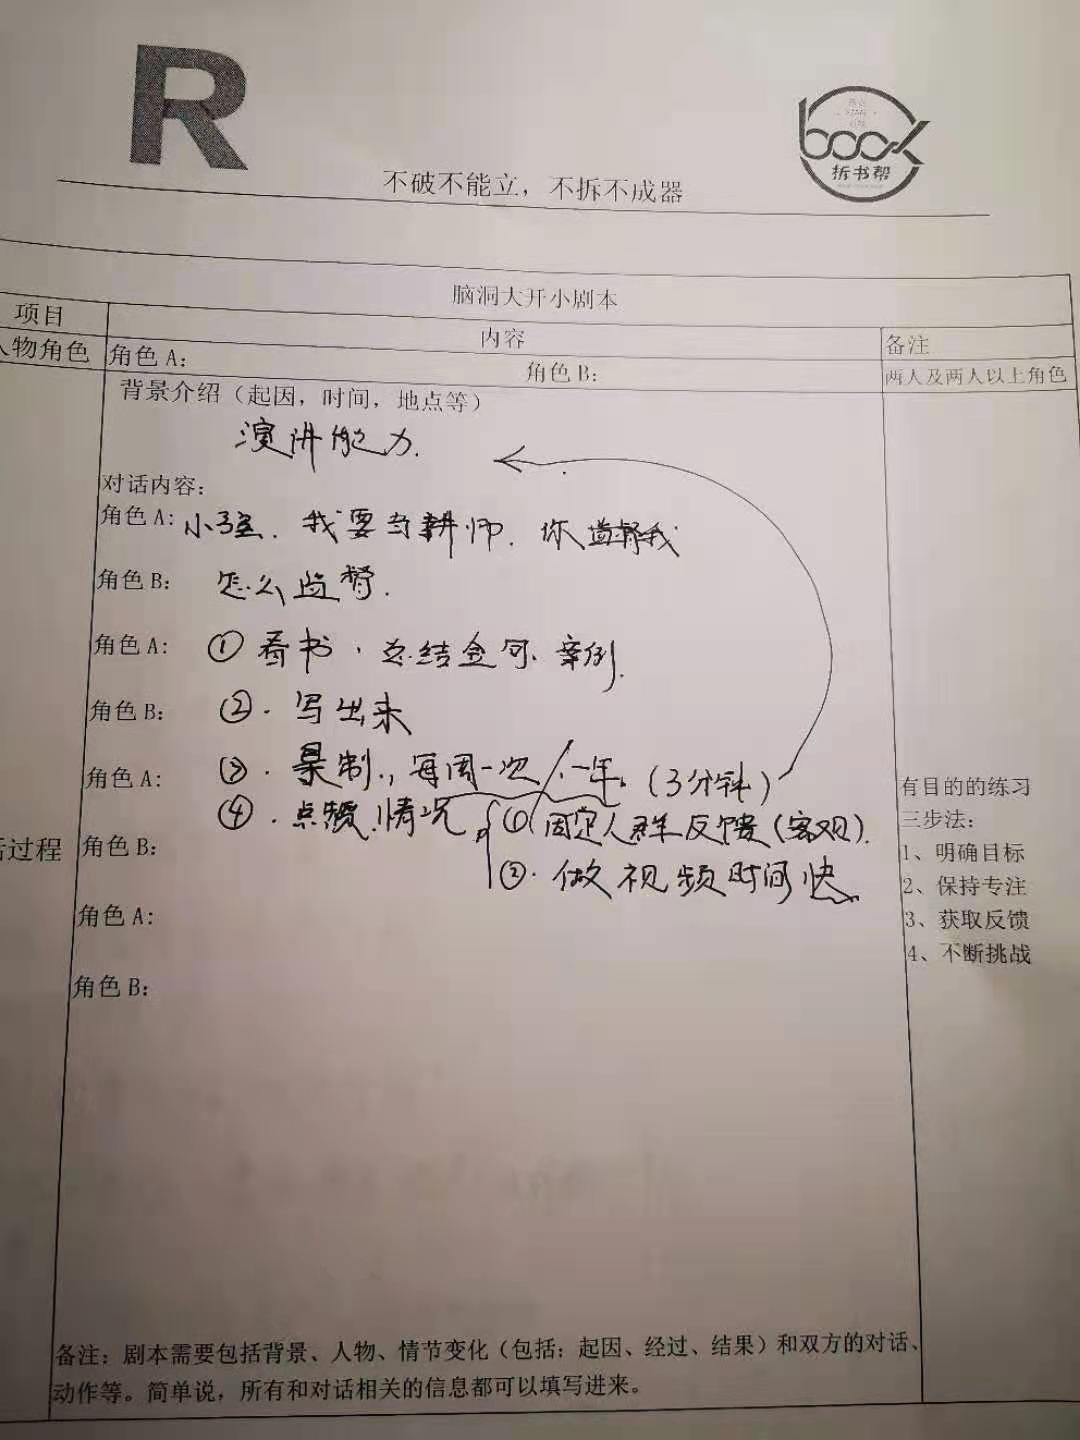 R
book
拆书帮
不破不能立，不拆不成器
脑洞大开小剧本
项目 内容 备注
人物角色 角色 A： 角色 B： 两人及两人以上角色
背景介绍（起因，时间，地点等）
演讲能力.
对话内容：
角色 A: 小强. 我要当讲师. 你监督我
角色 B： 怎么监督.
角色 A: ① 看书、总结金句、案例.
角色 B： ②. 写出来
角色 A: ③. 录制., 每周一次/一年. (3分钟)
④. 点赞情况 ① 固定人群反馈(客观).
活过程 角色 B：
②. 做视频时间快
角色 A:
角色 B：
有目的的练习
三步法：
1、明确目标
2、保持专注
3、获取反馈
4、不断挑战
备注：剧本需要包括背景、人物、情节变化（包括：起因、经过、结果）和双方的对话、
动作等。简单说，所有和对话相关的信息都可以填写进来。